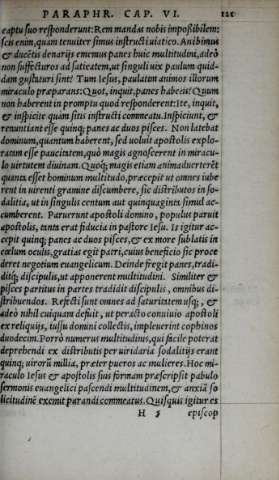 PARAPHR. CAP. VI. 121
captu suo respōderunt: Rem mandas nobis impoßibilem:
scis enim, quam tenuiter simus instructi uiatico. An ibimus
& ducētis denarijs ememus panes huic multitudini, adeò
non suffecturos ad satietatem, ut singuli uix paulum quid-
dam gustaturi sint? Tum Iesus, paulatim animos illorum
miraculo præparans: Quot, inquit, panes habetis? Quum
non haberent in promptu quod responderent: Ite, inquit,
& inspicite quàm sitis instructi commeatu. Inspiciunt, &
renuntiant esse quinq; panes ac duos pisces. Non latebat
dominum, quantum haberent, sed uoluit apostolis explo-
ratam esse paucitatem, quò magis agnoscerent in miracu-
lo uirtutem diuinam. Quoq; magis etiam animaduerterēt
quanta esset hominum multitudo, præcepit ut omnes iube
rent in uirenti gramine discumbere, sic distributos in so-
dalitia, ut in singulis centum aut quinquaginta simul ac-
cumberent. Paruerunt apostoli domino, populus paruit
apostolis, tanta erat fiducia in pastore Iesu. Is igitur ac-
cepit quinq; panes ac duos pisces, & ex more sublatis in
cœlum oculis, gratias egit patri, cuius beneficio sic proce
deret negotium euangelicum. Deinde fregit panes, tradi-
ditq; discipulis, ut apponerent multitudini. Similiter &
pisces partitus in partes tradidit discipulis, omnibus di-
stribuendos. Refecti sunt omnes ad saturitatem usq;, &
adeò nihil cuiquam defuit, ut peracto conuiuio apostoli
ex reliquijs, iussu domini collectis, impleuerint cophinos
duodecim. Porrò numerus multitudinis, qui facile poterat
deprehendi ex distributis per uiridaria sodalitijs erant
quinq; uirorū millia, præter pueros ac mulieres. Hoc mi-
raculo Iesus & apostolis suis formam præscripsit pabulo
sermonis euangelici pascendi multitudinem, & anxiā so
licitudinē exemit parandi commeatus. Quisquis igitur ex
H 5 episcop